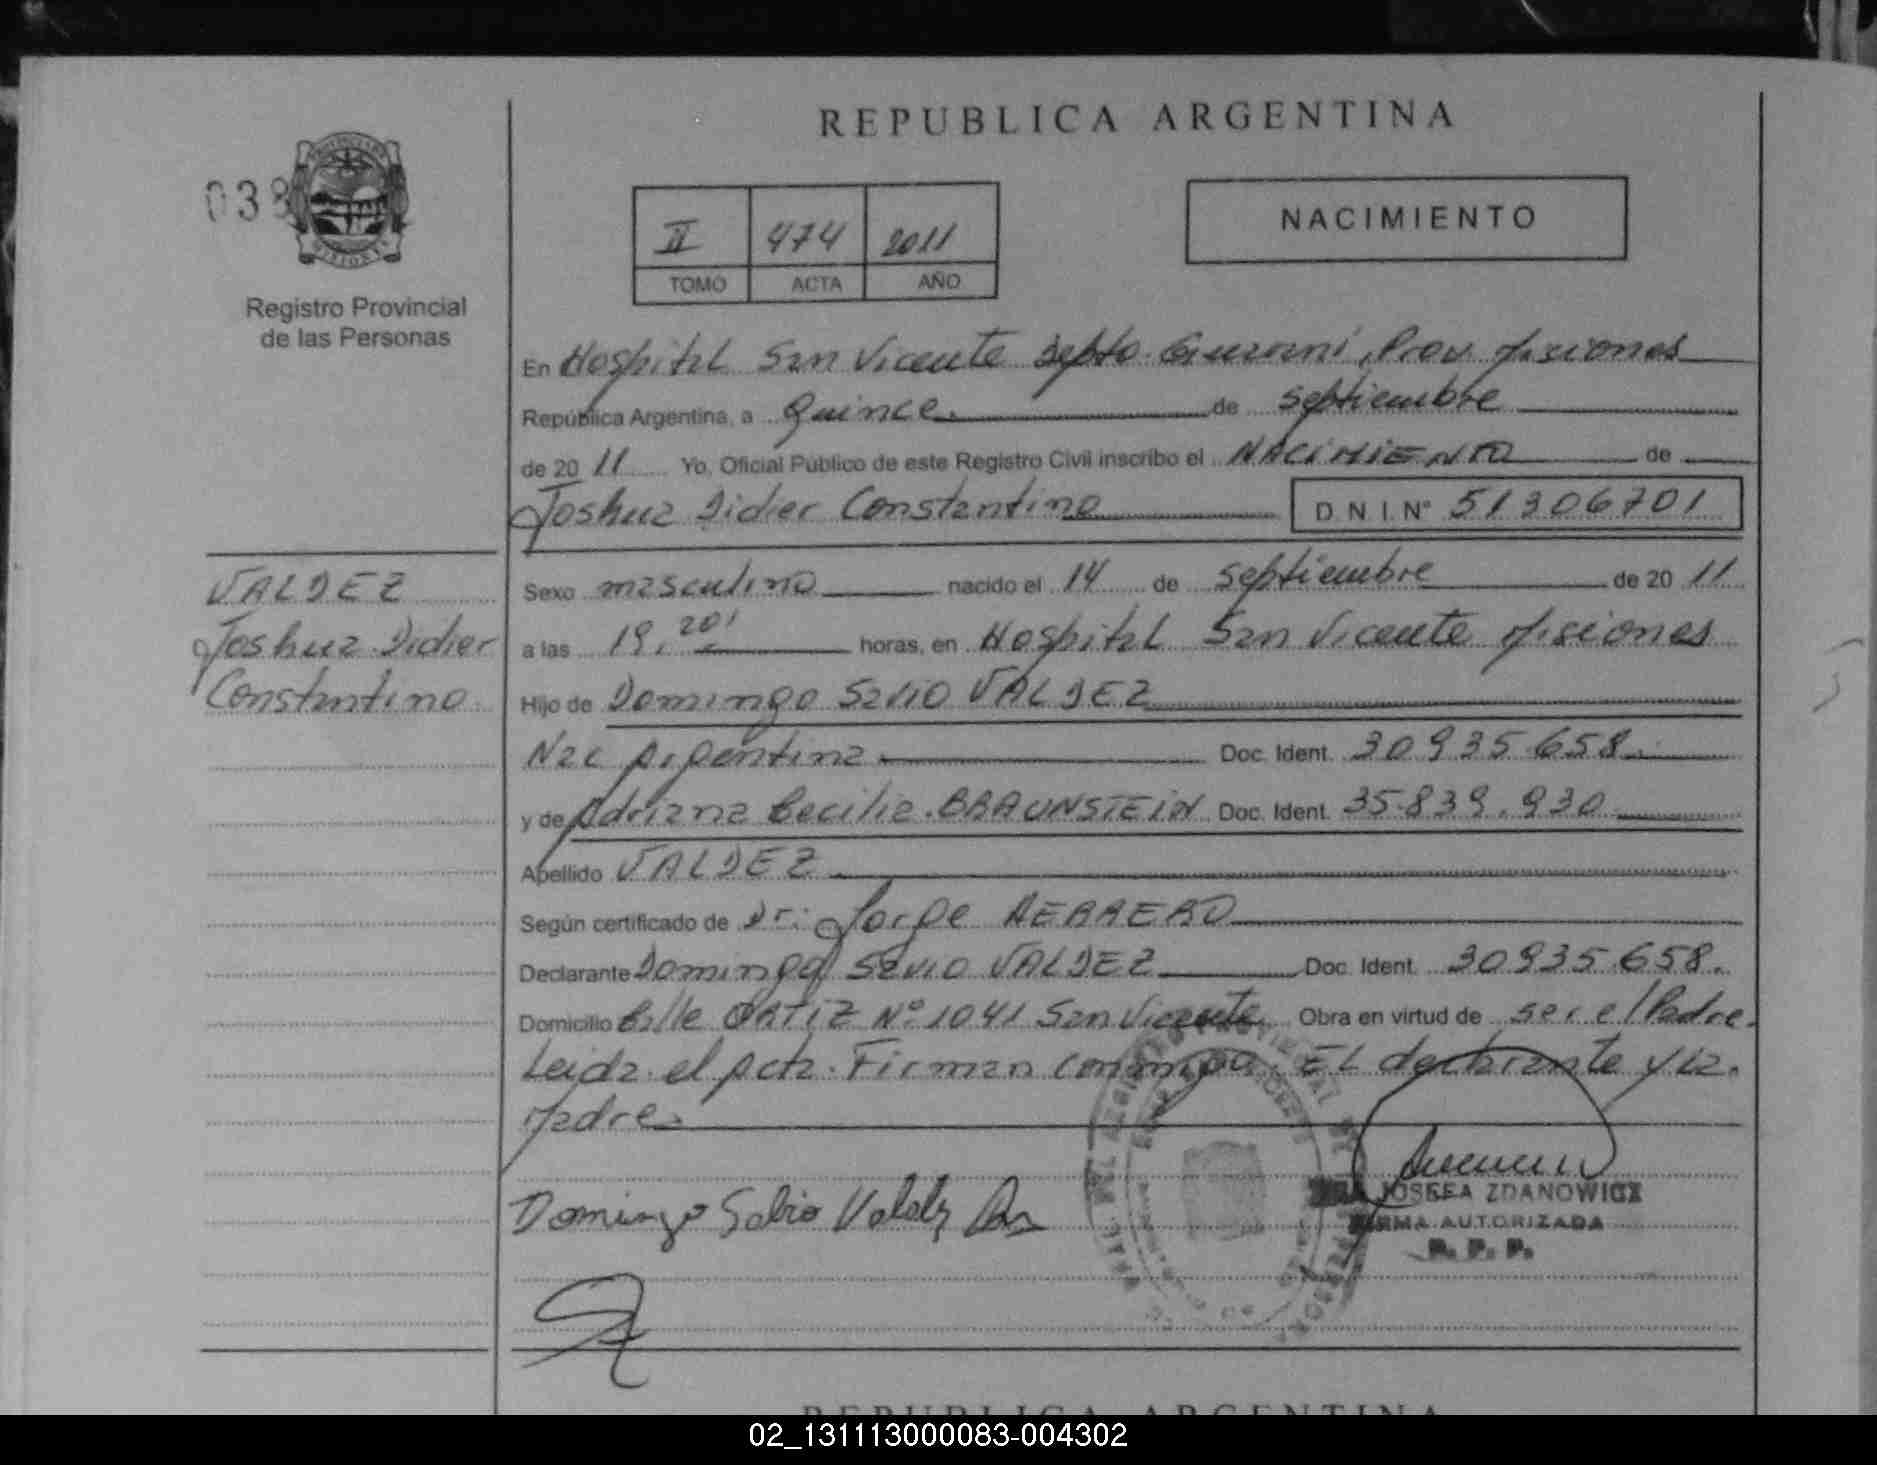 REPUBLICA ARGENTINA
038
II 474 2011
TOMO ACTA AÑO
NACIMIENTO
Registro Provincial
de las Personas
En Hospital San Vicente Depto. Guaraní, Prov. Misiones
República Argentina, a Quince de Septiembre
de 2011 Yo, Oficial Público de este Registro Civil inscribo el NACIMIENTO de
Joshua Didier Constantino D.N.I. N° 51306701
VALDEZ
Joshua Didier
Constantino
Sexo masculino nacido el 14 de Septiembre de 2011
a las 19,20' horas, en Hospital San Vicente Misiones
Hijo de Domingo Savio VALDEZ
Nac Argentina Doc. Ident. 30935.658.
y de Adriana Cecilia. BRAUNSTEIN Doc. Ident. 35.839.930
Apellido VALDEZ
Según certificado de Dr: Jorge HERRERO
Declarante Domingo Savio VALDEZ Doc. Ident. 30935.658.
Domicilio Calle ORTIZ N° 1041 San Vicente Obra en virtud de ser el Padre.
Leida el Acta. Firman conmigo. EL declarante y la.
Madre
JOSEFA ZDANOWICZ
FIRMA AUTORIZADA
R. P. P.
Domingo Sabio Valdez
REPUBLICA ARGENTINA
02_131113000083-004302